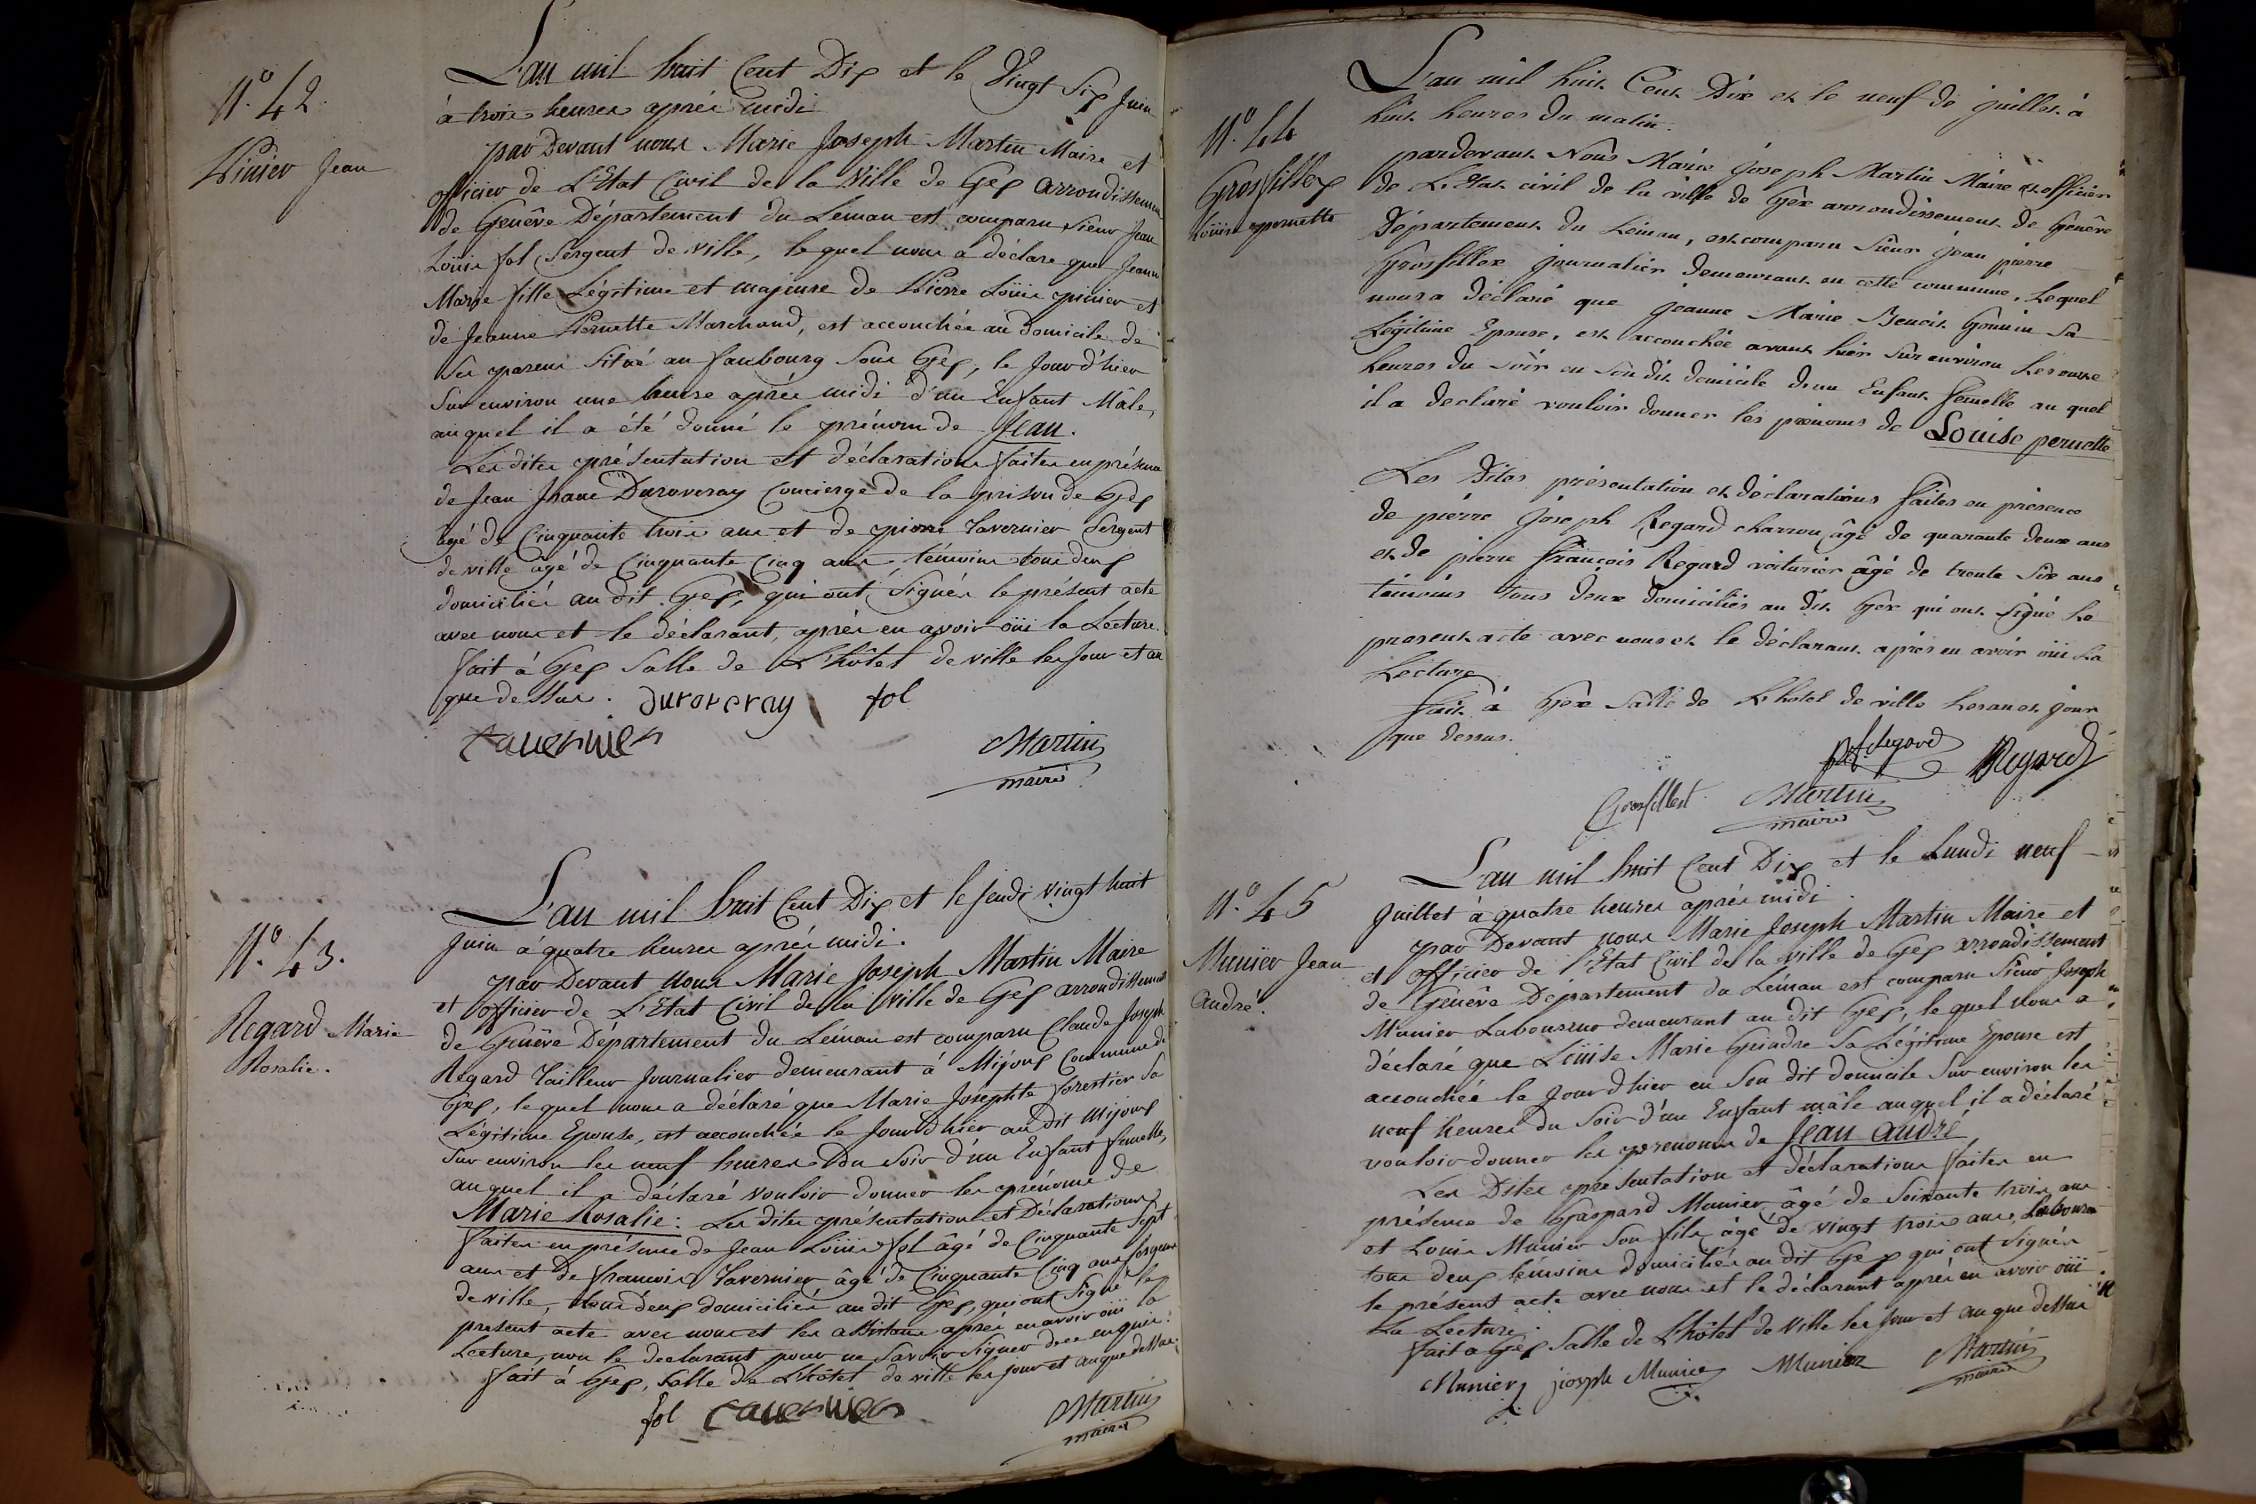 N.o 42
Pinier Jean
L'an mil huit Cent Dix et le Vingt Six Juin
à trois heures après midi
par Devant nous Marie Joseph Martin Maire et
officier de L'Etat Civil de la Ville de Gex arrondissement
de Genêve Département du Léman est comparu Sieur Jean
Loüis fol Sergent de Ville, lequel nous a déclaré que Jeanne
Marie fille Légitime et majeure de Pierre Loüis pinier et
de Jeanne Pernette Marchand, est accouchée au domicile de
Ses parens Situé au faubourg Sous Gex, le Jour d'hier
Sur environ une heure après midi d'un Enfant Mâle,
auquel il a été donné le prénom de Jean.
Les dites présentation et déclarations faites en présence
de Jean Duroveray Concierge de la prison de Gex
agé de Cinquante trois ans et de pierre Tavernier Sergent
de ville âgé de Cinquante Cinq ans, témoins tous deux
domiciliés au dit Gex, qui ont Signés le présent acte
avec nous et le déclarant, après en avoir oüi la Lecture.
fait à Gex Salle de L'hôtel de ville les Jour et an
que dessus. duroveray fol
tavernier Martin
maire
N.o 43.
Regard Marie
Rosalie.
L'an mil huit Cent Dix et le Jeudi vingt huit
Juin à quatre heures après midi.
par Devant nous Marie Joseph Martin Maire
et officier de L'Etat Civil de la ville de Gex arrondissement
de Genêve Département du Léman est comparu Claude Joseph
Regard Tailleur Journalier demeurant à Mijoux Commune de
Gex, lequel nous a déclaré que Marie Josephte forestier Sa
Légitime Epouse, est accouchée le Jour d'hier au dit Mijoux
Sur environ les neuf heures du Soir d'un Enfant femelle,
auquel il a déclaré vouloir donner les prénoms de
Marie Rosalie: Les dites présentation et Déclarations
faites en présence de Jean Loüis fol âgé de Cinquante Sept
ans et de francois Tavernier âgé de Cinquante Cinq ans Sergens
de ville, tous deux domiciliés au dit Gex, qui ont Signé le
present acte avec nous et les assistans après en avoir oüi la
Lecture, non le declarant pour ne Savoir Signer de ce enquis.
fait à Gex, Salle de L'hôtel de ville les jour et an que dessus.
fol tavernier Martin
maire
N.o 44
Grosfillex
Loüise pernette
L'an mil huit Cent Dix et le neuf de juillet à
huit heures du matin.
pardevant Nous Marie joseph Martin Maire et officier
de L'Etat civil de la ville de Gex arrondissement de Genêve
Département du Léman, est comparu Sieur jean pierre
Grosfillex journalier demeurant en cette commune, Lequel
nous a déclaré que jeanne Marie Benoit Gonnin Sa
Légitime Epouse, est accouchée avant hier Sur environ Les onze
heures du soir en son dit domicile d'un Enfant femelle au quel
il a declaré vouloir donner les prénoms de Louise pernette
Les Dites présentation et déclarations faites en présence
de pierre joseph Regard charron âgé de quarante deux ans
et de pierre françois Regard voiturier âgé de trente Six ans
témoins tous deux domiciliés au dit Gex qui ont signé Le
present acte avec nous et le déclarant après en avoir oüi La
Lecture
fait à Gex Salle de L'hotel de ville Les an et jour
que dessus.
p.f. Regard Regard
Grosfillex Martin
maire
N.o 45
Munier Jean
André.
L'an mil huit Cent Dix et le Lundi neuf
Juillet à quatre heures après midi.
par Devant nous Marie Joseph Martin Maire et
et officier de l'Etat Civil de la ville de Gex arrondissement
de Genêve Département du Léman est comparu Sieur Joseph
Munier Laboureur demeurant au dit Gex, lequel nous a
déclaré que Loüise Marie Grindre Sa Légitime Epouse est
accouchée le Jour d'hier en Son dit domicile Sur environ les
neuf heures du Soir d'un Enfant mâle auquel il a déclaré
vouloir donner les prenoms de Jean André
Les Dites présentation et déclarations faites en
présence de Gaspard Munier âgé de Soixante trois ans
et Louis Munier Son fils âgé de vingt trois ans, Laboureurs
tous deux témoins domiciliés au dit Gex qui ont Signés
le présent acte avec nous et le déclarant après en avoir oüi
La Lecture.
fait à Gex Salle de L'hôtel de Ville les Jour et an que dessus
Munier joseph Munier Munier Martin
maire